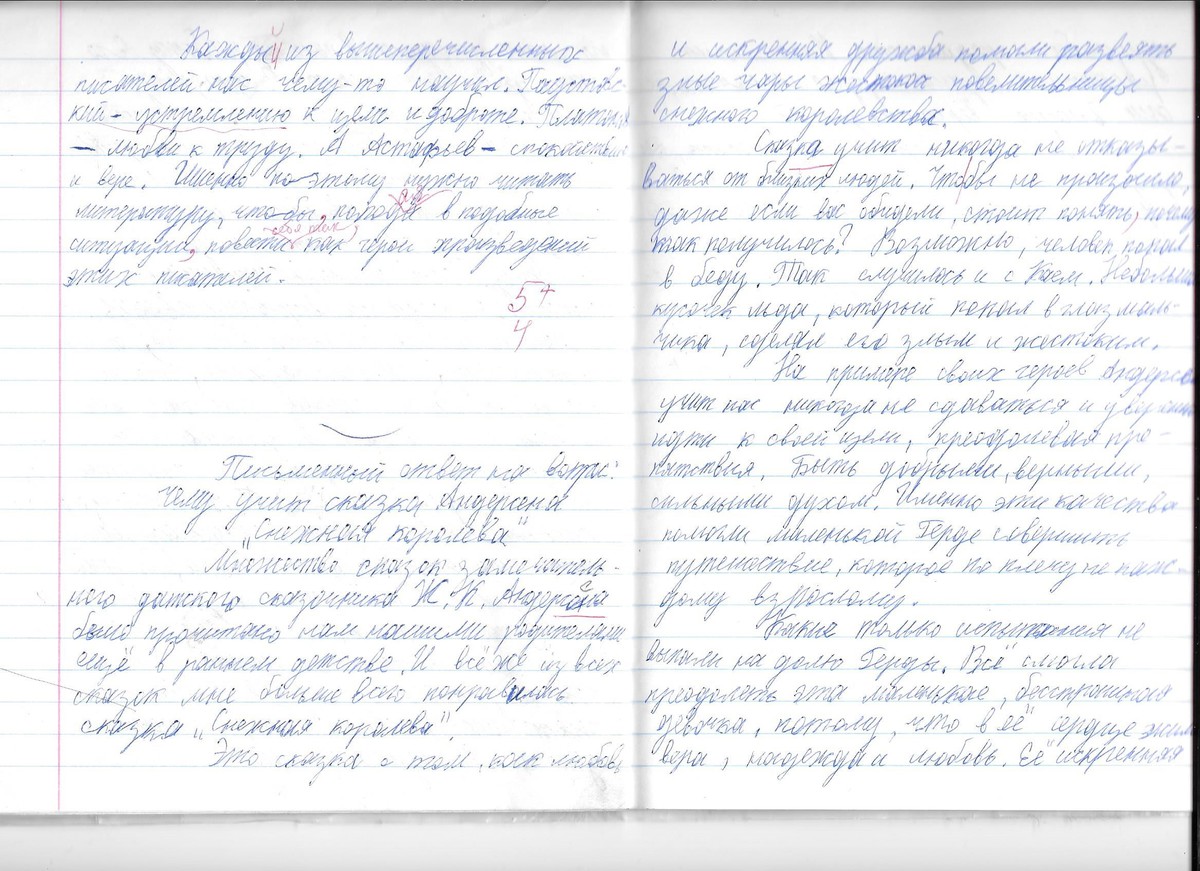 Каждый из вышеперечисленных
писателей нас чему-то научил. Паустовс-
кий - устремлению к цели и доброте. Платонов
- любви к труду. А Астафьев - спокойствию
и вере. Именно по-этому нужно читать
литературу, что-бы, попадая в подобные
ситуации, повести себя так, как герои произведений
этих писателей.
5+
4
Письменный ответ на вопрос:
чему учит сказка Андерсена
„Снежная королева"
Множество сказок замечатель-
ного датского сказочника Ж. К. Андерсена
было прочитано нам нашими родителями
ещё в раннем детстве. И всё же из всех
сказок мне больше всего понравилась
сказка „Снежная королева".
Это сказка о том, как любовь
и искренняя дружба помогли развеять
злые чары жестокой повелительницы
снежного королевства.
Сказка учит никогда не отказы-
ваться от близких людей. Чтобы не произошло,
даже если вас обидели, стоит понять, почему
так получилось? Возможно, человек попал
в беду. Так случилось и с Каем. Небольшой
кусочек льда, который попал в глаз маль-
чика, сделал его злым и жестоким.
На примере своих героев Андерсен
учит нас никогда не сдаваться и уверенно
идти к своей цели, преодолевая пре-
пятствия. Быть добрыми, верными,
сильными духом. Именно эти качества
помогли маленькой Герде совершить
путешествие, которое по плечу не каж-
дому взрослому.
Какие только испытания не
выпали на долю Герды. Всё смогла
преодолеть эта маленькая, бесстрашная
девочка, потому, что в её сердце жили
вера, надежда и любовь. Её искренняя